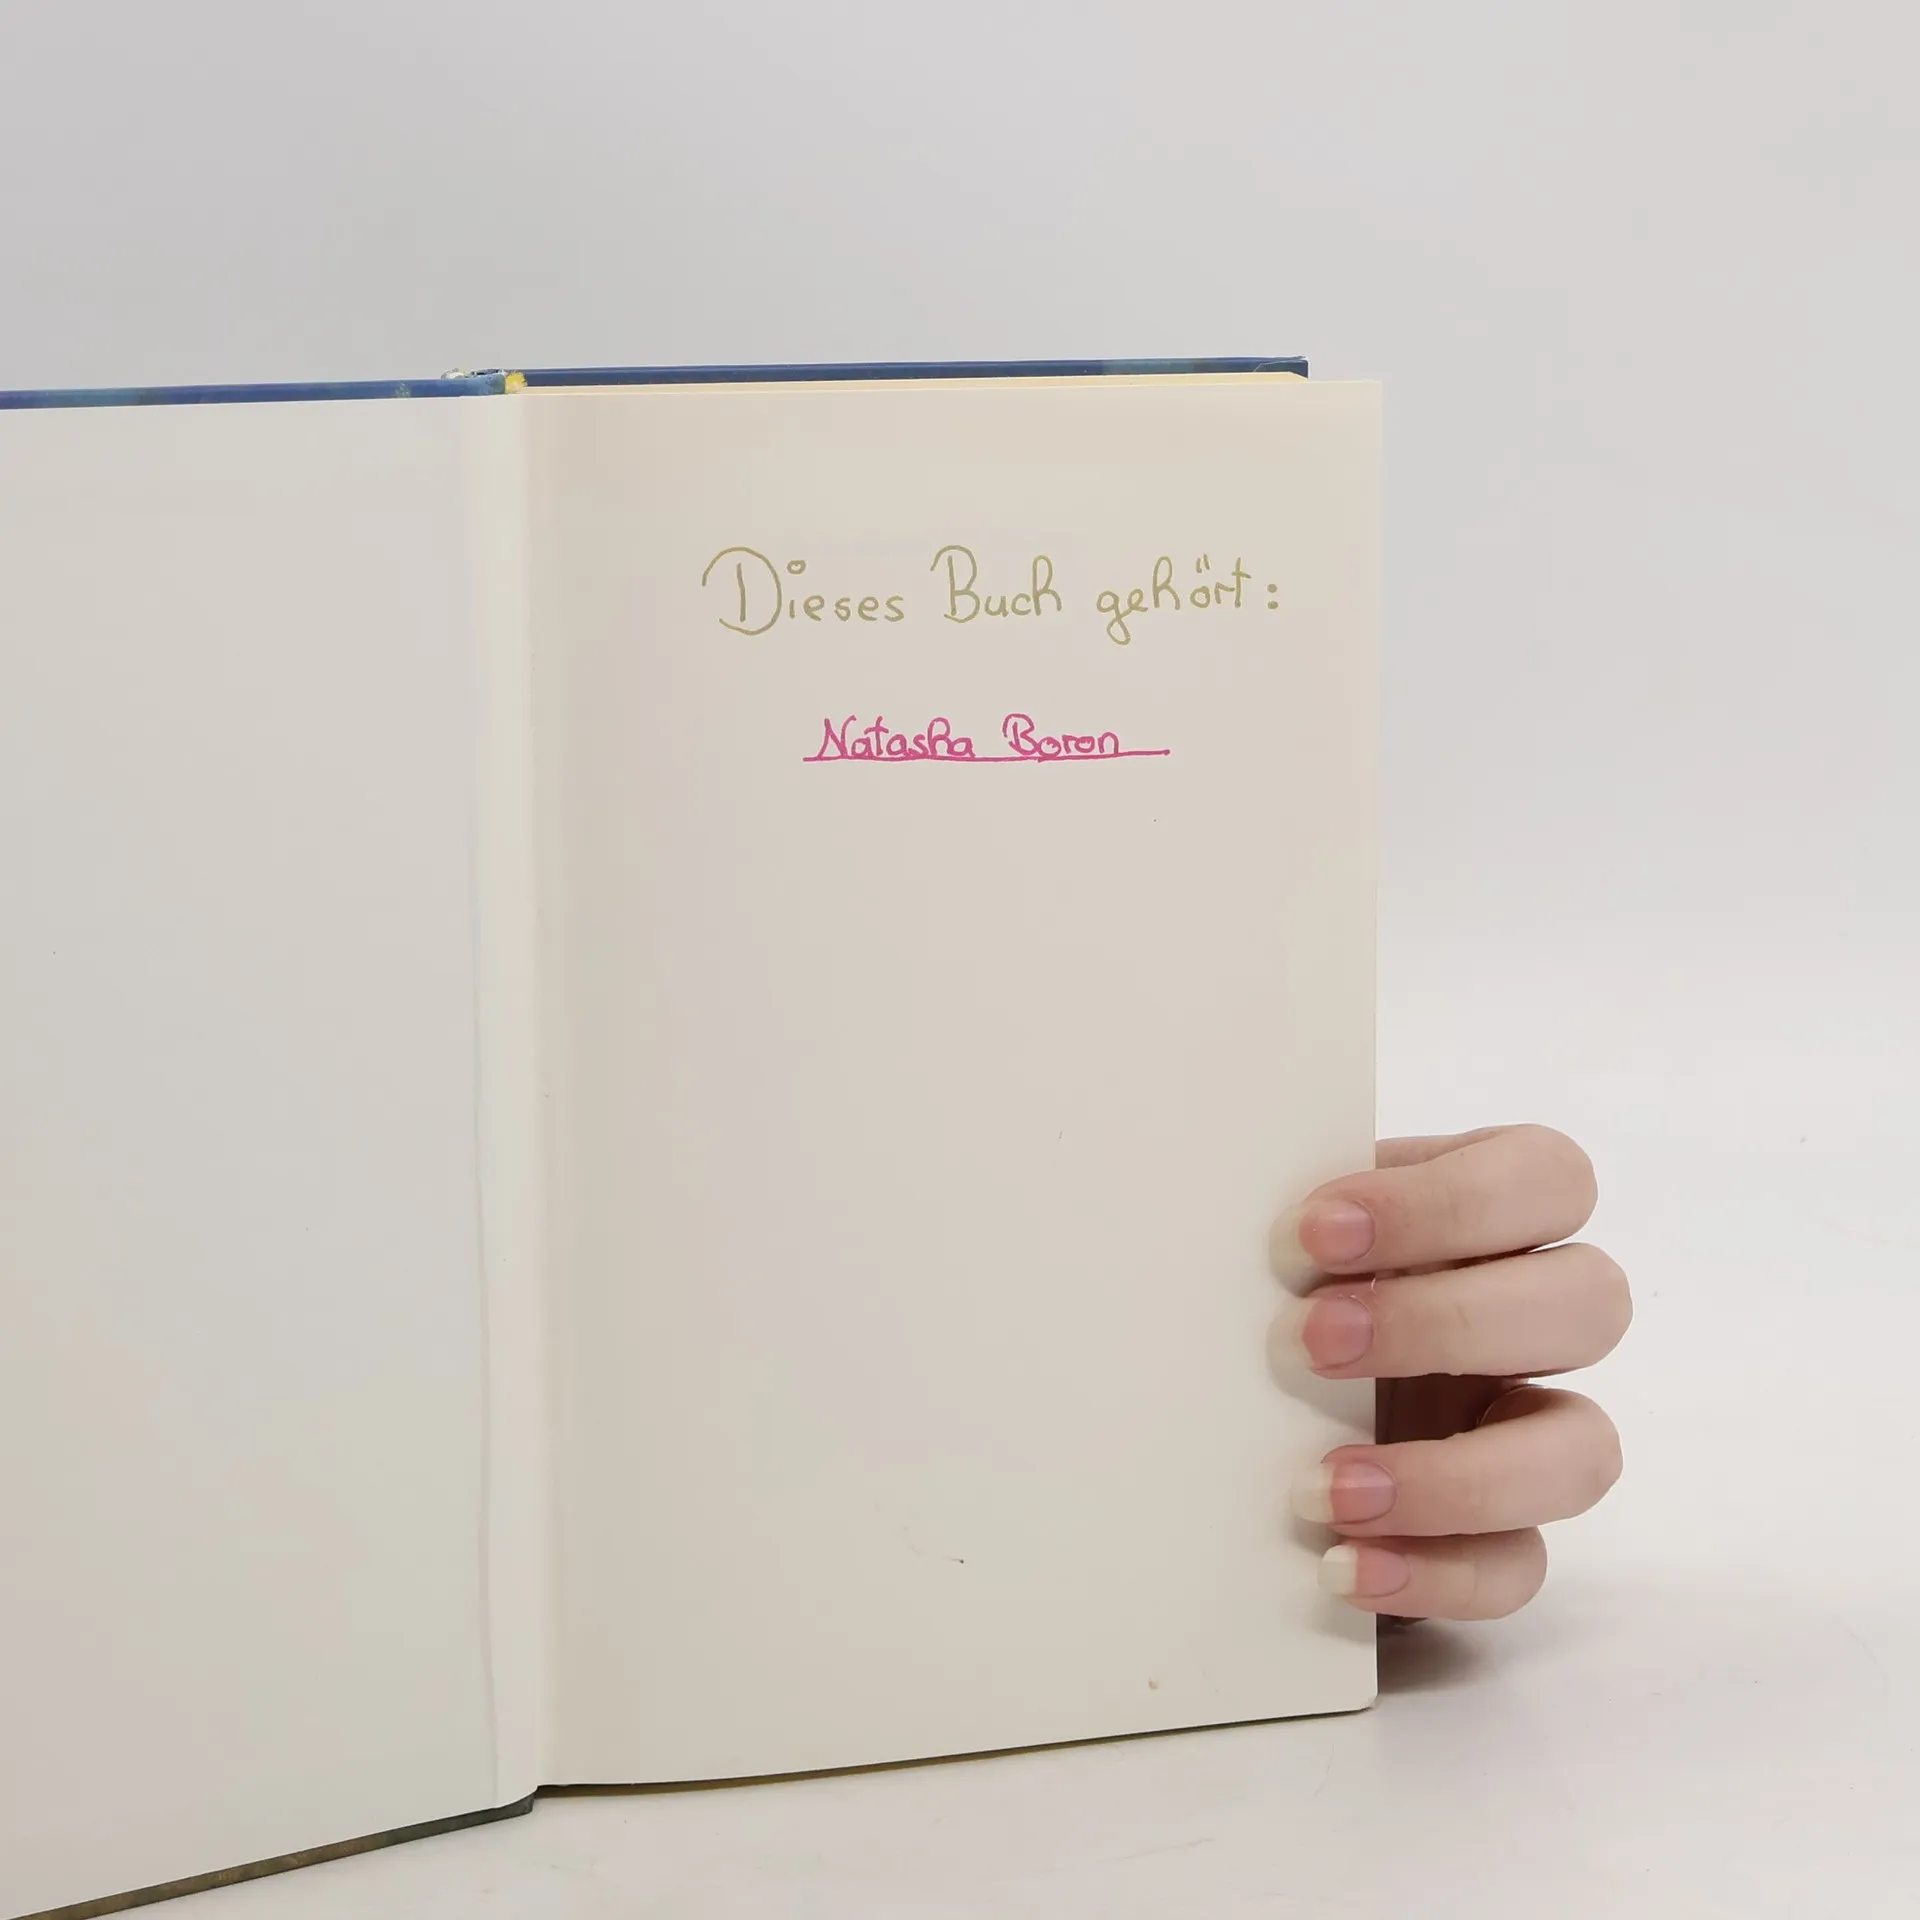 Dieses Buch gehört:
Natasha Boron